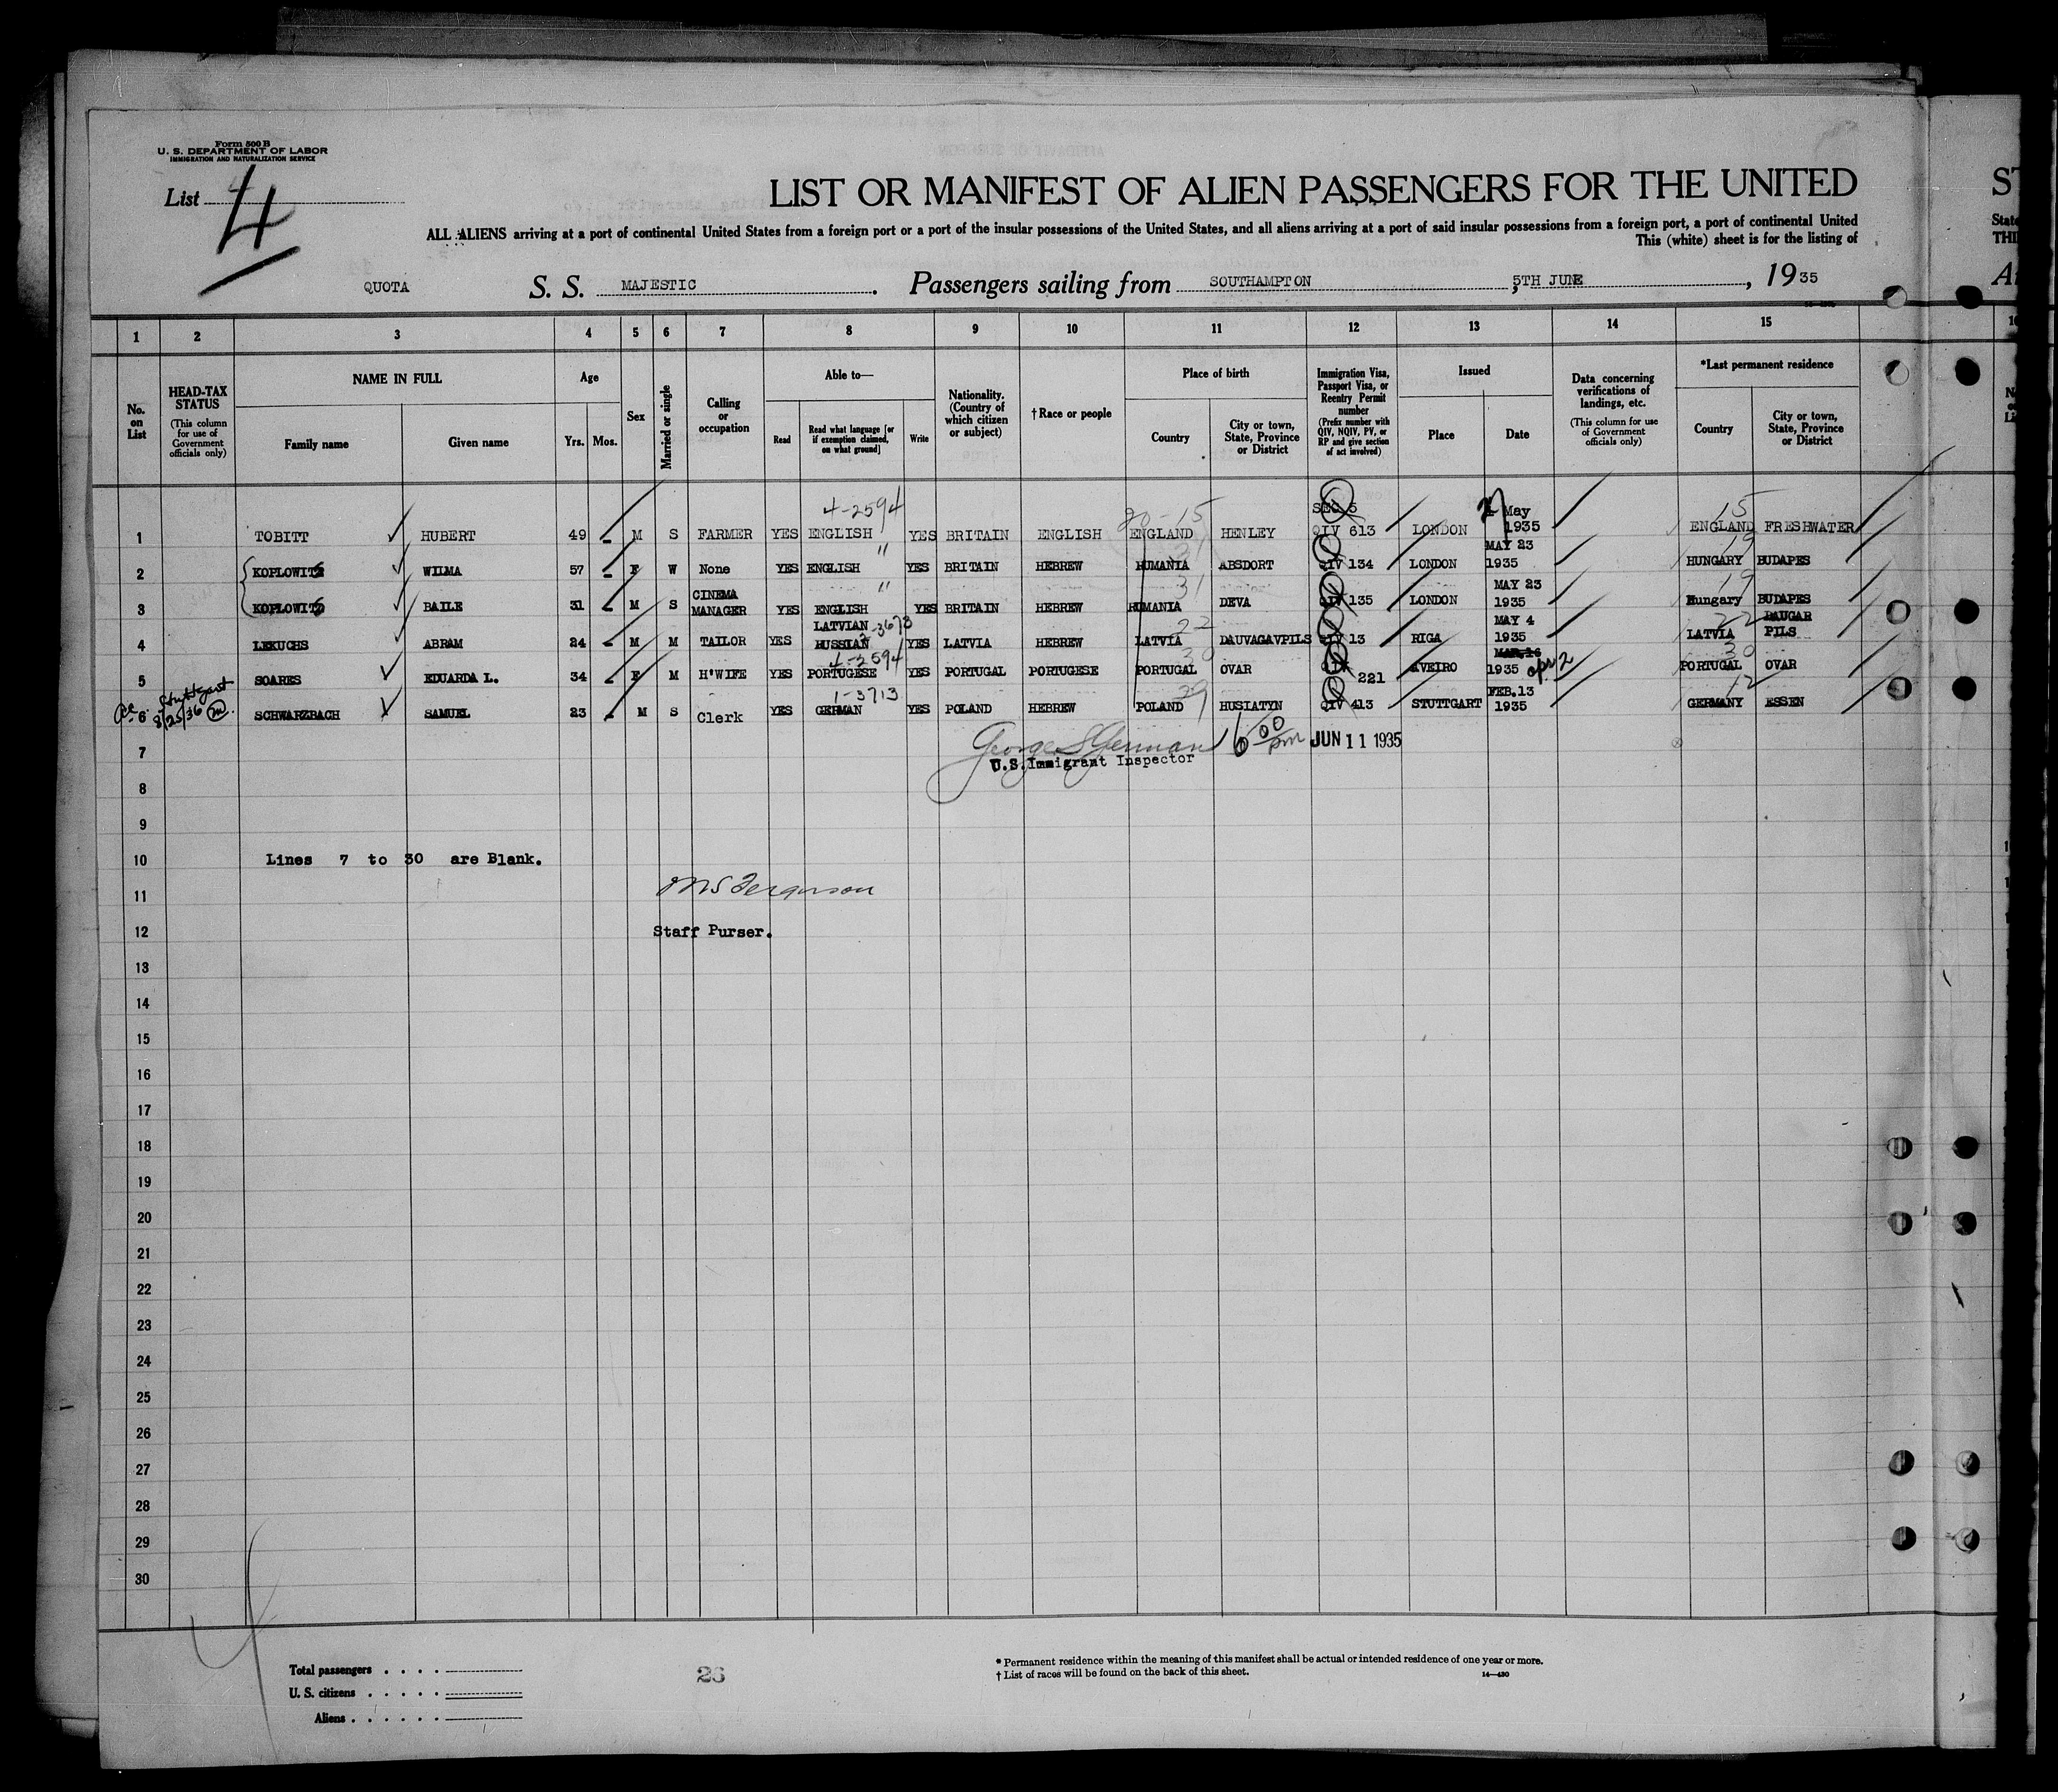 Form 500 B
U. S. DEPARTMENT OF LABOR
IMMIGRATION AND NATURALIZATION SERVICE
List 4
LIST OR MANIFEST OF ALIEN PASSENGERS FOR THE UNITED
ALL ALIENS arriving at a port of continental United States from a foreign port or a port of the insular possessions of the United States, and all aliens arriving at a port of said insular possessions from a foreign port, a port of continental United
This (white) sheet is for the listing of
QUOTA S. S. MAJESTIC. Passengers sailing from SOUTHAMPTON, 5TH JUNE, 1935
1 2 3 4 5 6 7 8 9 10 11 12 13 14 15
No. on List
HEAD-TAX STATUS (This column for use of Government officials only)
NAME IN FULL
Family name Given name
Age
Yrs. Mos.
Sex
Married or single
Calling or occupation
Able to—
Read
Read what language [or if exemption claimed, on what ground]
Write
Nationality. (Country of which citizen or subject)
† Race or people
Place of birth
Country
City or town, State, Province or District
Immigration Visa, Passport Visa, or Reentry Permit number (Prefix number with QIV, NQIV, PV, or RP and give section of act involved)
Issued
Place Date
Data concerning verifications of landings, etc. (This column for use of Government officials only)
*Last permanent residence
Country
City or town, State, Province or District
4-2594 20-15 SEC 5 May 15
1 TOBITT HUBERT 49 M S FARMER YES ENGLISH YES BRITAIN ENGLISH ENGLAND HENLEY QIV 613 LONDON 1935 ENGLAND FRESHWATER
" 31 MAY 23 19
2 KOPLOWITS WILMA 57 F W None YES ENGLISH YES BRITAIN HEBREW RUMANIA ABSDORT QIV 134 LONDON 1935 HUNGARY BUDAPES
" 31 MAY 23 19
3 KOPLOWITS BAILE 31 M S CINEMA MANAGER YES ENGLISH YES BRITAIN HEBREW RUMANIA DEVA QIV 135 LONDON 1935 Hungary BUDAPES
LATVIAN 2-3673 22 MAY 4 22 DAUGAR
4 LEKUCHS ABRAM 24 M M TAILOR YES RUSSIAN YES LATVIA HEBREW LATVIA DAUVAGAVPILS QIV 13 RIGA 1935 LATVIA PILS
4-2594 30 MAR.16 30
5 SOARES EDUARDA L. 34 F M H'WIFE YES PORTUGESE YES PORTUGAL PORTUGESE PORTUGAL OVAR QIV 221 AVEIRO 1935 apr 2 PORTUGAL OVAR
Stuttgart 1-3713 29 FEB.13 12
8/25/36 6 SCHWARZBACH SAMUEL 23 M S Clerk YES GERMAN YES POLAND HEBREW POLAND HUSIATYN QIV 413 STUTTGART 1935 GERMANY ESSEN
7 George S German 6 00 pm JUN 11 1935
U.S. Immigrant Inspector
8
9
10 Lines 7 to 30 are Blank.
11 Ferguson
12 Staff Purser.
13
14
15
16
17
18
19
20
21
22
23
24
25
26
27
28
29
30
Total passengers
U. S. citizens
Aliens
26
* Permanent residence within the meaning of this manifest shall be actual or intended residence of one year or more.
† List of races will be found on the back of this sheet.
14—430